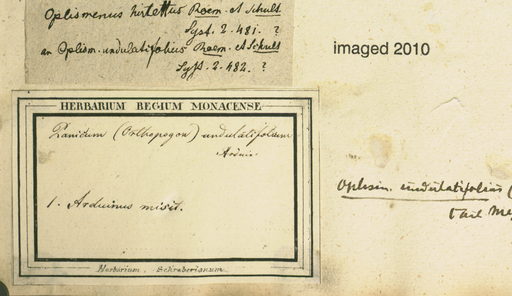 Oplismenus hirtellus Roem. et Schult
Syst. 2. 481. ?
an Oplism. undulatifolius Roem. et Schult
Syst. 2. 482. ?
imaged 2010
HERBARIUM REGIUM MONACENSE
Panicum (Orthopogon) undulatifolium
Arduin
1. Arduinus misit.
Herbarium Schreberianum
Oplism. undulatifolius (
Carl Me